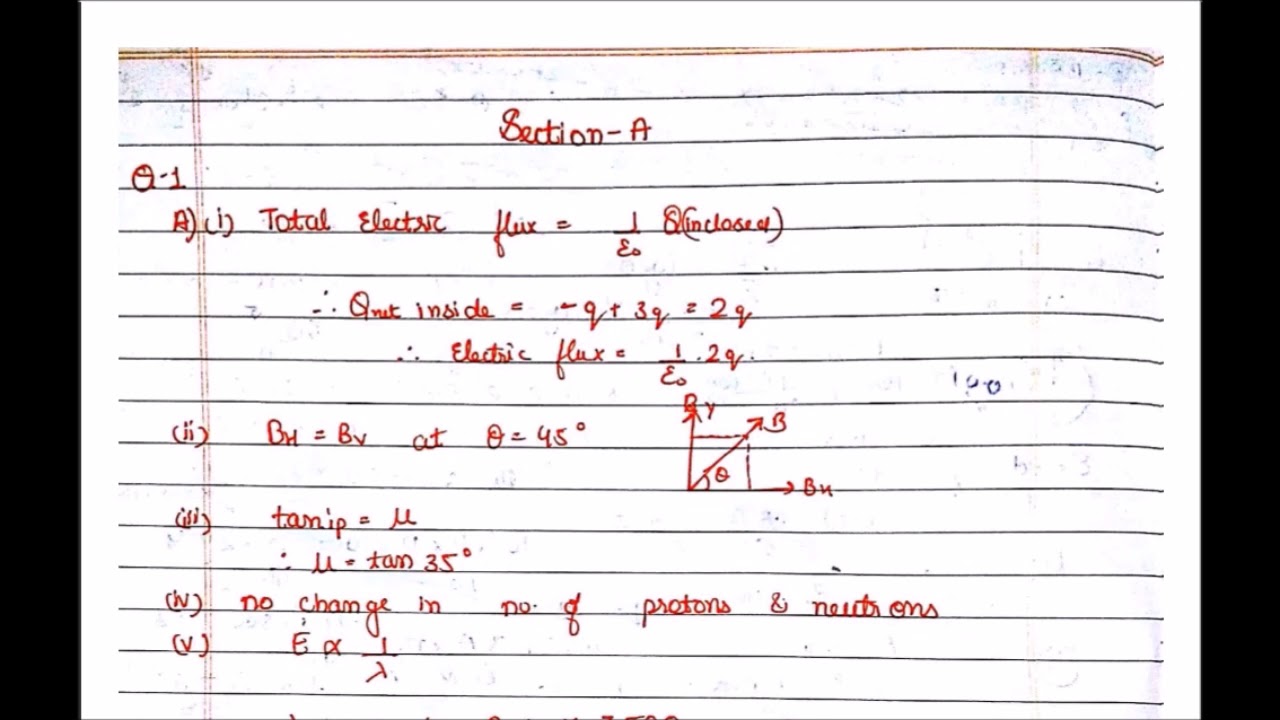 Section-A
Q-1
A)(i) Total Electric flux = 1/ε₀ Q(inclosed)
∴ Qnet inside = -q + 3q = 2q
∴ Electric flux = 1/ε₀ . 2q.
(ii) BH = BV at θ = 45°
B Y
B
θ
BH
(iii) tan ip = μ
∴ μ = tan 35°
(iv) no change in no. of protons & neutrons
(v) E ∝ 1/λ